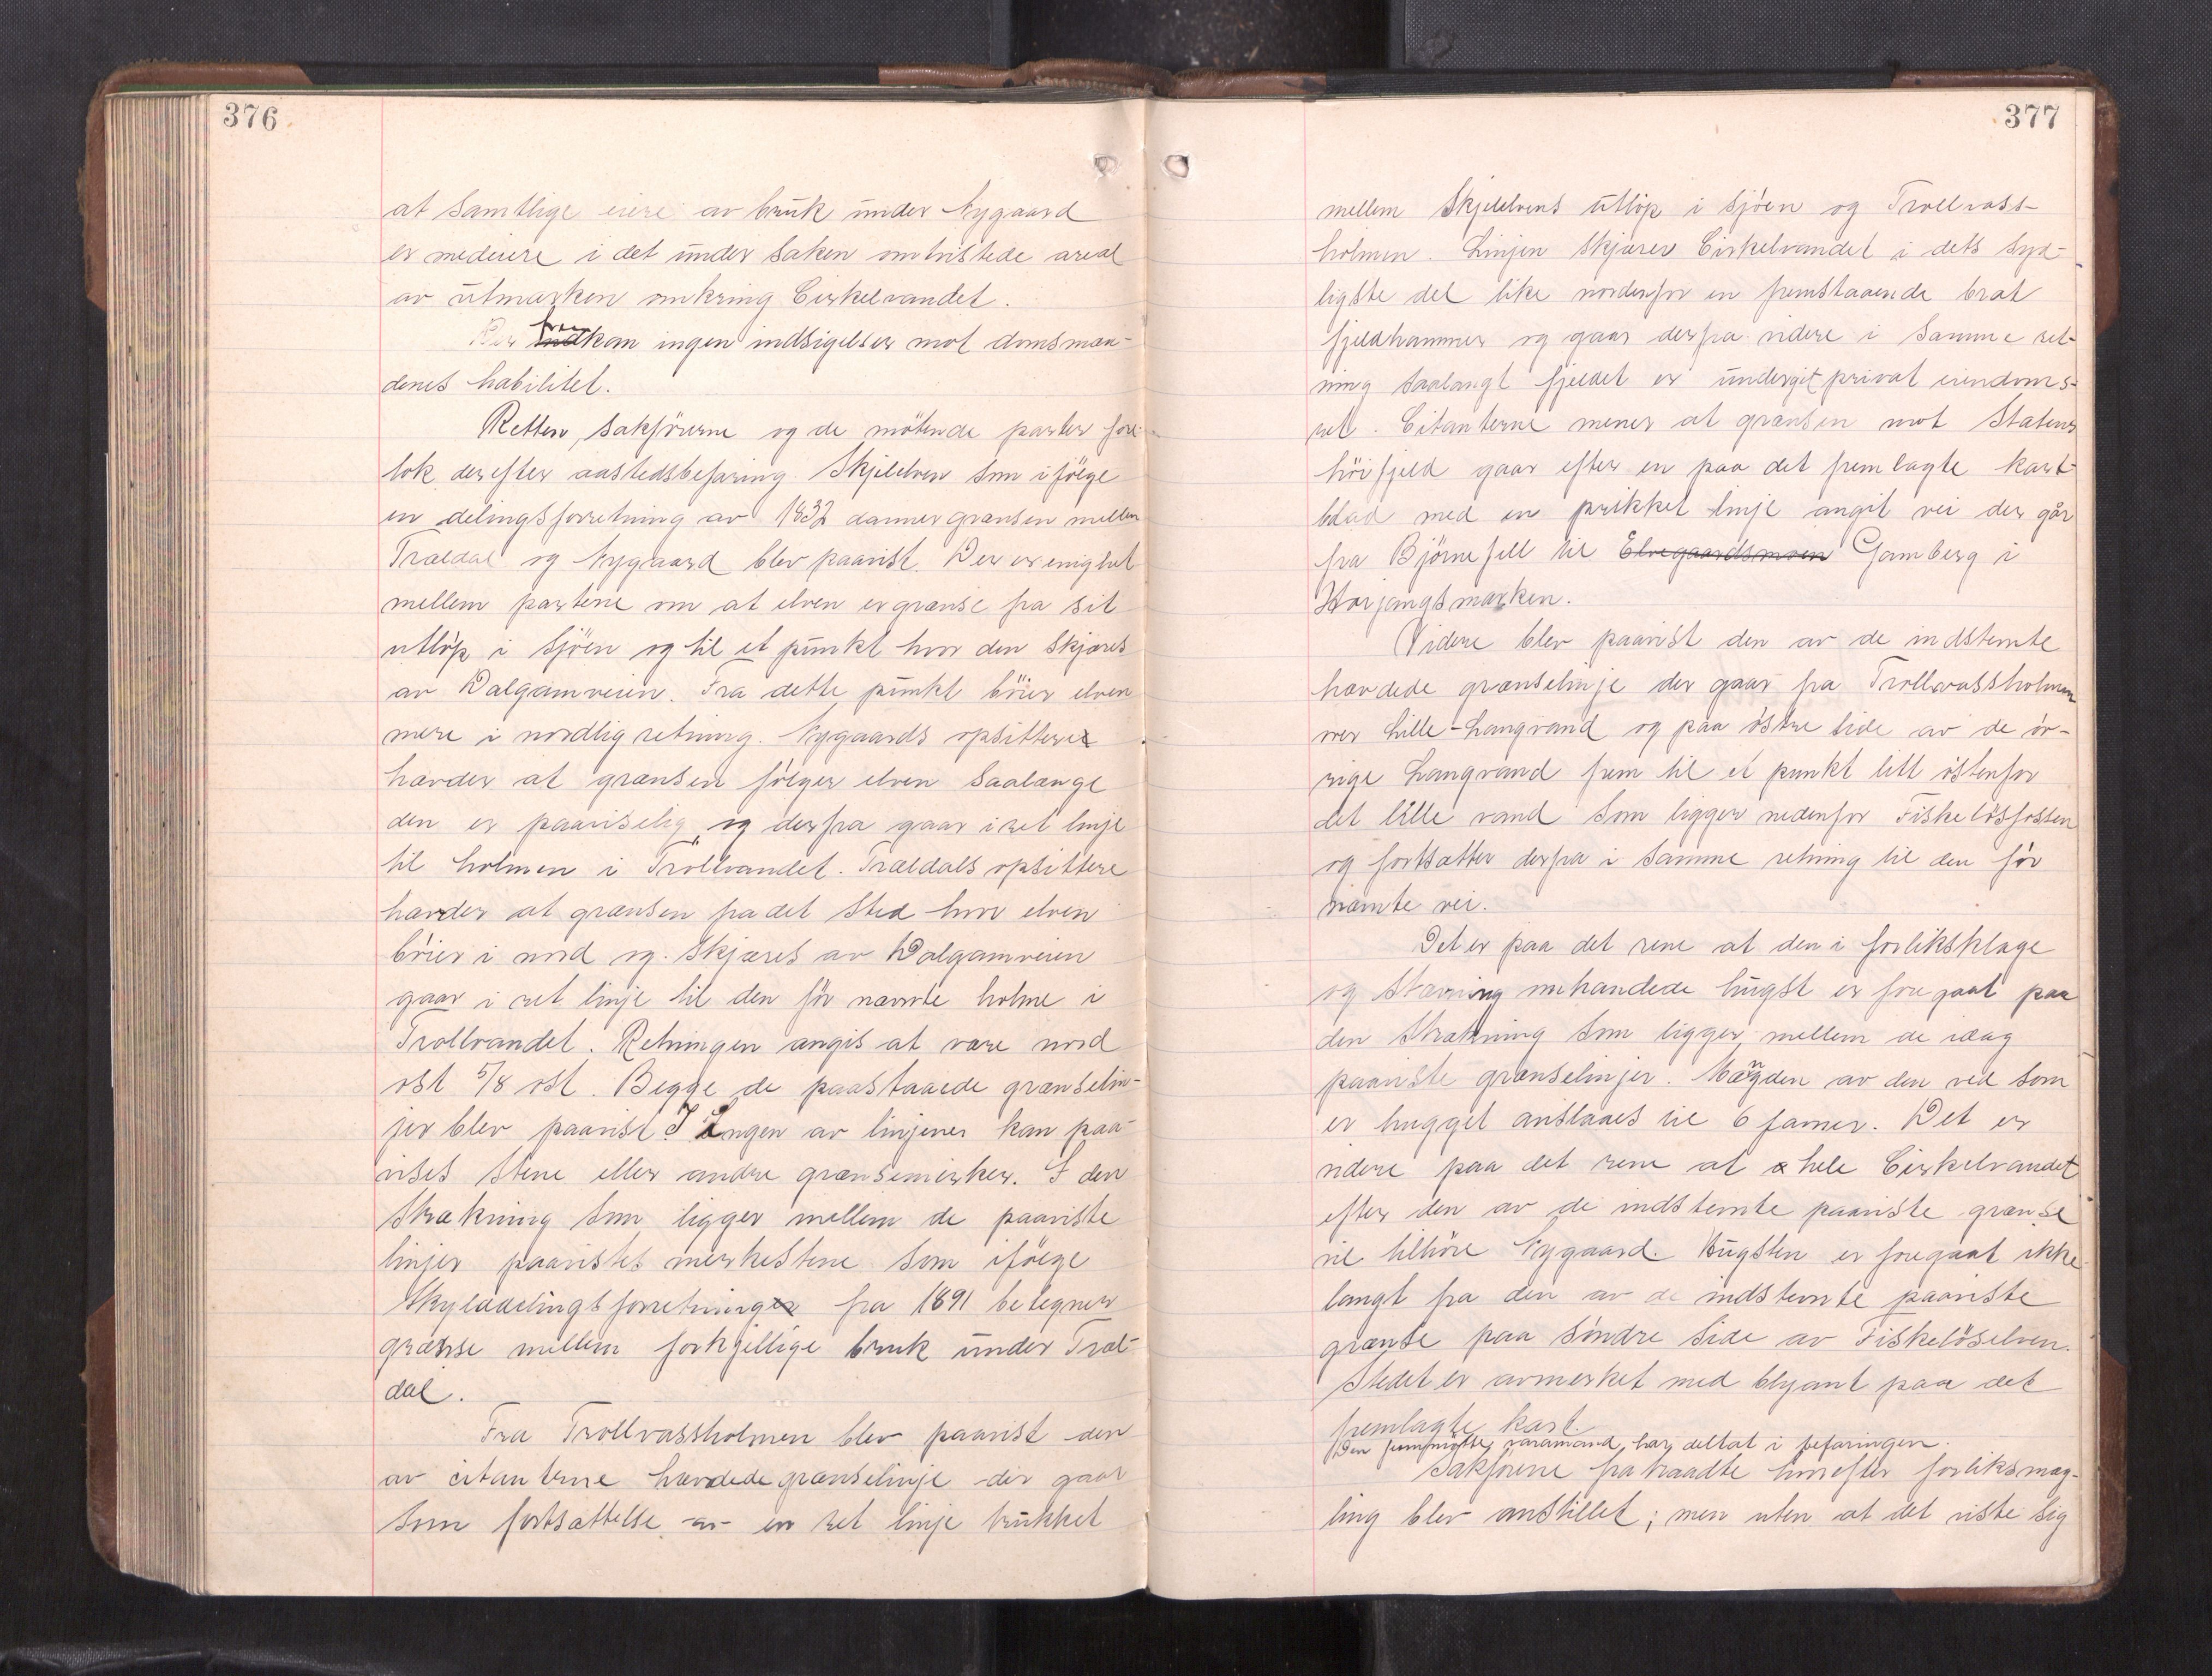 376
at samtlige eiere av bruk under Nygaard
er medeiere i det under saken omtvistede areal
av utmarken omkring Cirkelvandet.
Der fremkom ingen indsigelser mot domsmæn-
denes habilitet.
Retten, sakførerne og de møtende parter fore-
tok derefter aastedsbefaring. Skjelelven som ifølge
en delingsforretning av 1832 danner grænsen mellem
Træedal og Nygaard blev paavist. Der er enighet
mellem partene om at elven er grænse fra sit
utløp i sjøen og til et punkt hvor den skjæres
av Dalgamveien. Fra dette punkt bøier elven
mere i nordlig retning. Nygaards opsittere
hævder at grænsen følger elven saalænge
den er paaviselig, og derfra gaar i ret linje
til holmen i Trollvandet. Træeldals opsittere
hævder at grænsen fra det sted hvor elven
bøier i nord og skjæres av Dalgamveien
gaar i ret linje til den før nævnte holme i
Trollvandet. Retningen angis at være nord
ost 5/8 ost. Begge de paastaaede grænselin-
jer blev paavist. I Ingen av linjener kan paa-
vises stene eller andre grænsemerker. I den
strækning som ligger mellem de paaviste
linjer paavistes merkestene som ifølge
skylddelingsforretning fra 1891 betegner
grænse mellem forskjellige bruk under Træl-
dal.
Fra Trollvassholmen blev paavist den
av citanterne hævdede grænselinje der gaar
som fortsættelse av en ret linje trukket
377
mellem Skjelelvens utløp i sjøen og Trollvass-
holmen. Linjen skjærer Cirkelvandet i dets syd-
ligste del like nordenfor en fremstaaende brat
fjeldhammer og gaar derfra videre i samme ret-
ning saalangt fjeldet er undergit privat eiendoms-
ret. Citanterne mener at grænsen mot Statens
høifjeld gaar efter en paa det fremlagte kart-
blad med en prikket linje angit vei der går
fra Bjørnefjell til Elvegaardsmoen Gamberg i
Herjangsmarken.
Videre blev paavist den av de indstemte
hævdede grænselinje der gaar fra Trollvassholmen
over Lille-Langvand og paa østre side av de øv-
rige Langvand frem til et punkt litt østenfor
det lille vand som ligger nedenfor Fiskeløsfossen
og fortsætter derfra i samme retning til den før
nævnte vei.
Det er paa det rene at den i forliksklage
og stævning omhandlede hugst er foregaat paa
den strækning som ligger mellem de idag
paaviste grænselinjer. Mængden av den ved som
er hugget anslaaes til 6 famner. Det er
videre paa det rene at hele Cirkelvandet
efter den av de indstemte paaviste grænse
vil tilhøre Nygaard. Hugsten er foregaat ikke
langt fra den av de indstemte paaviste
grænse paa søndre side av Fiskeløselven.
Stedet er avmerket med blyant paa det
fremlagte kart.
Den fremmøtte varamand har deltat i befaringen.
Sakførerne fratraadte hvorefter forliksmæg-
ling blev anstillet; men uten at det viste sig